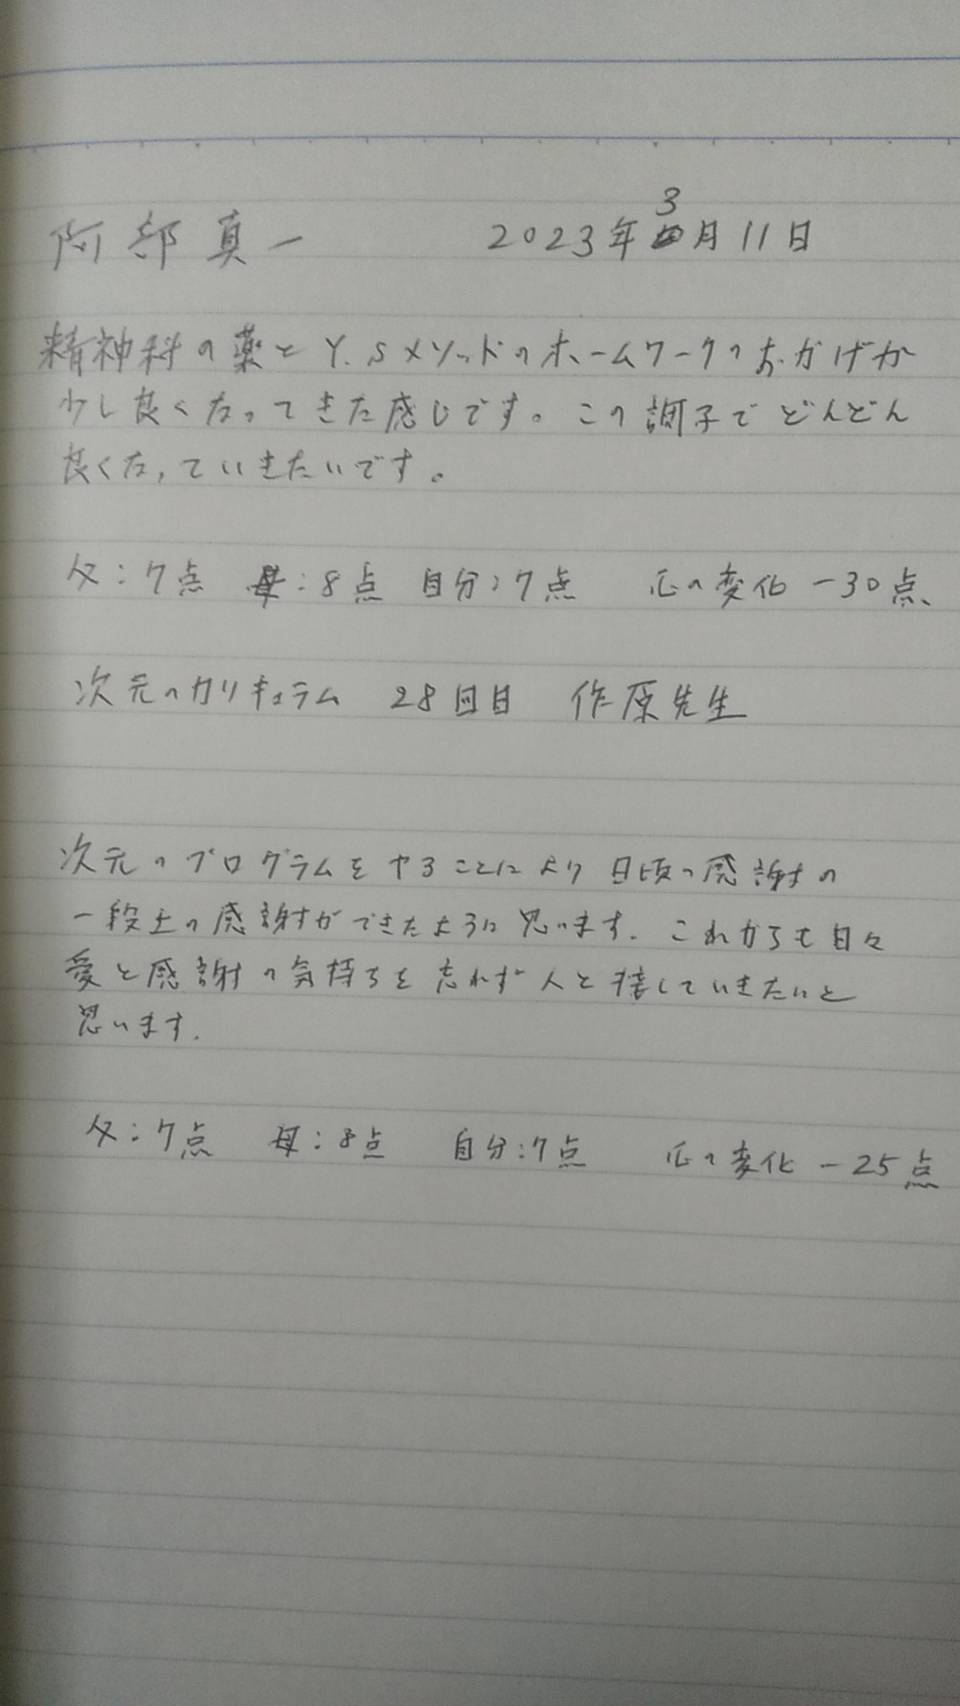 阿部真一　2023年3月11日
精神科の薬とY.Sメソッドのホームワークのおかげか
少し良くなってきた感じです。この調子でどんどん
良くなっていきたいです。
父：7点　母：8点　自分：7点　心の変化 －30点
次元のカリキュラム　28回目　作原先生
次元のプログラムをやることにより日頃の感謝の
一段上の感謝ができたように思います。これからも日々
愛と感謝の気持ちを忘れず人と接していきたいと
思います。
父：7点　母：8点　自分：7点　心の変化 －25点